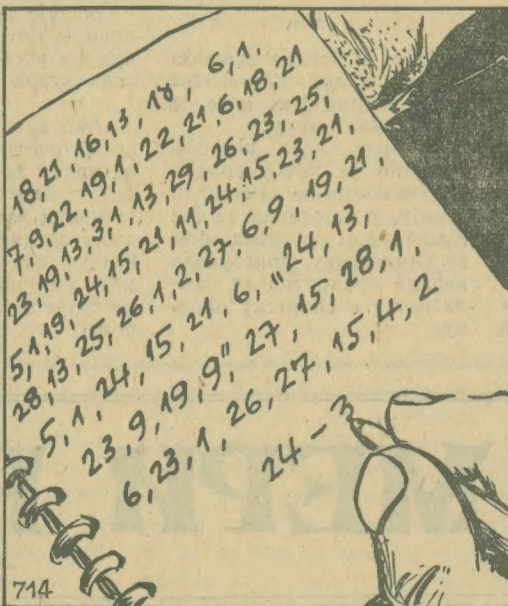 18, 21, 16, 13, 18, 6, 1.
7, 9, 22, 19, 1, 22, 21, 6, 18, 21
23, 19, 13, 3, 1, 13, 29, 26, 23, 25,
5, 1, 19, 24, 15, 21, 11, 24, 15, 23, 21.
28, 13, 25, 26, 1, 2, 27, 6, 9, 19, 21.
5, 1, 24, 15, 21, 6, „24, 13,
23, 9, 19, 9" 27, 15, 28, 1.
6, 23, 1, 26, 27, 15, 4, 2
24 - 3
714